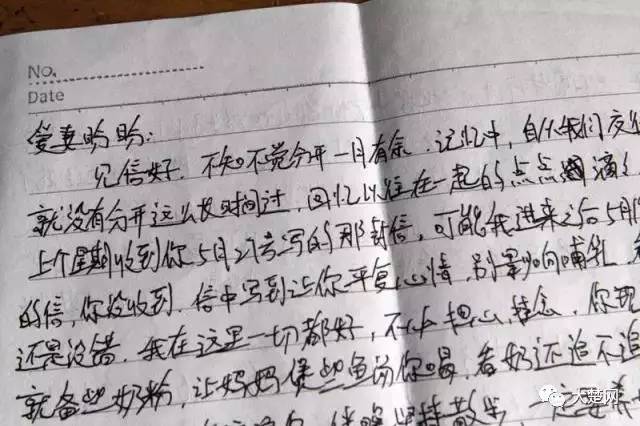 No.
Date
爱妻盼盼：
见信好．不知不觉分开一月有余．记忆中，自从我们交
就没有分开这么长时间过，回忆以往在一起的点点滴
上个星期收到你5月27号写的那封信，可能我进来之后5月
的信，你没收到．信中写到让你平复心情，别影响哺乳，
还是没错．我在这里一切都好，不必担心，挂念，你现
就备些奶粉，让妈妈煲些鱼汤你喝，看奶还追不追
坚持散步，一定要
大楚网